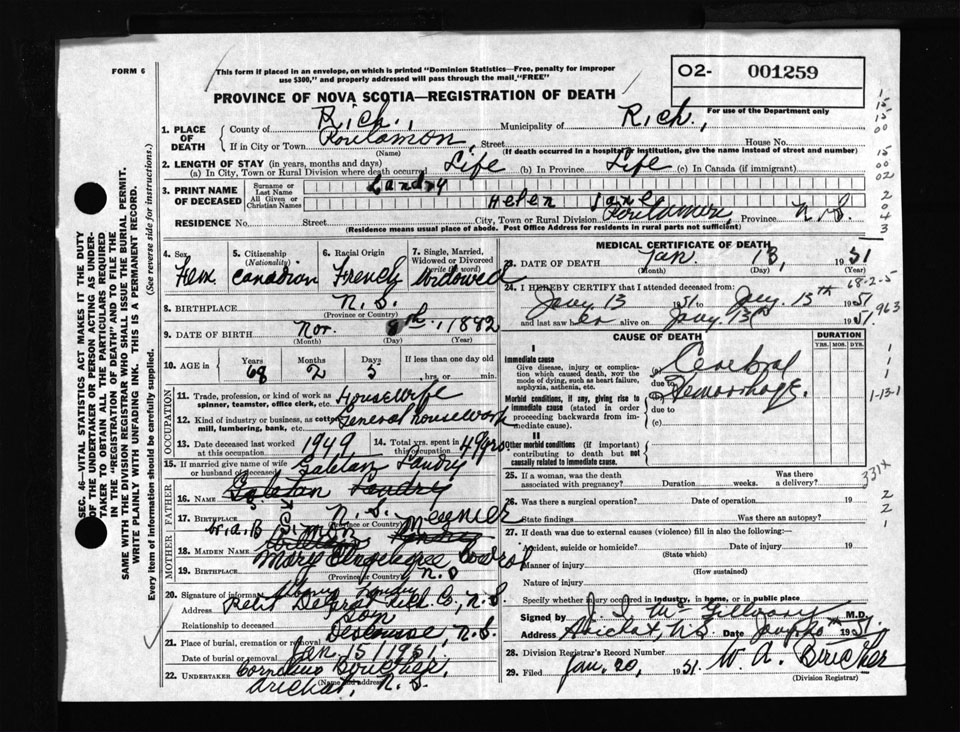 FORM 6
This form if placed in an envelope, on which is printed "Dominion Statistics—Free, penalty for improper
use $300," and properly addressed will pass through the mail, "FREE"
O2- 001259
PROVINCE OF NOVA SCOTIA—REGISTRATION OF DEATH
For use of the Department only
1. PLACE OF DEATH
County of Rich., Municipality of Rich.,
If in City or Town Street House No.
(Name) (If death occurred in a hospital or institution, give the name instead of street and number)
2. LENGTH OF STAY (in years, months and days)
(a) In City, Town or Rural Division where death occurred Life (b) In Province Life (c) In Canada (if immigrant)
3. PRINT NAME OF DECEASED
Surname or Last Name Landry
All Given or Christian Names Helen Jane
RESIDENCE No. Street City, Town or Rural Division Province N.S.
(Residence means usual place of abode. Post Office Address for residents in rural parts not sufficient)
4. Sex Fem
5. Citizenship (Nationality) Canadian
6. Racial Origin French
7. Single, Married, Widowed or Divorced (write the word) Widowed
8. BIRTHPLACE N.S.
(Province or Country)
9. DATE OF BIRTH Nov. 8th, 1882
(Month) (Day) (Year)
10. AGE in Years 68 Months 2 Days 5 If less than one day old
hrs. or min.
OCCUPATION
11. Trade, profession, or kind of work as spinner, teamster, office clerk, etc. Housewife
12. Kind of industry or business, as cotton mill, lumbering, bank, etc. General housework
13. Date deceased last worked at this occupation 1949
14. Total yrs. spent in this occupation 49 yrs
15. If married give name of wife or husband of deceased Landry
FATHER
16. Name
17. Birthplace N.S.
(Province or Country)
MOTHER
18. MAIDEN NAME Mary
19. BIRTHPLACE N.S
(Province or Country)
20. Signature of informant
Address Petit Degrat Rich. Co., N.S.
Relationship to deceased Son
21. Place of burial, cremation or removal Descousse, N.S.
Date of burial or removal Jan. 15, 1951.
22. UNDERTAKER Boucher,
(Name and address) Arichat, N.S.
MEDICAL CERTIFICATE OF DEATH
23. DATE OF DEATH Jan. 13, 1951
(Month) (Day) (Year)
24. I HEREBY CERTIFY that I attended deceased from:
Jany 13 1951 to Jany. 13th 1951
and last saw her alive on Jany. 13th 1951.
CAUSE OF DEATH
DURATION
YRS. MOS. DYS.
I
Immediate cause
Give disease, injury or complication which caused death, NOT the mode of dying, such as heart failure, asphyxia, asthenia, etc.
(a) Cerebral
due to
Hemorrhage.
Morbid conditions, if any, giving rise to immediate cause (stated in order proceeding backwards from immediate cause).
due to
(c)
II
Other morbid conditions (if important) contributing to death but not causally related to immediate cause.
25. If a woman, was the death associated with pregnancy? Duration weeks. Was there a delivery?
26. Was there a surgical operation? Date of operation 19
State findings Was there an autopsy?
27. If death was due to external causes (violence) fill in also the following:
Accident, suicide or homicide? Date of injury 19
(State which)
Manner of injury
(How sustained)
Nature of injury
Specify whether injury occurred in industry, in home, or in public place
Signed by M.D.
Address Arichat, N.S. Date 1951.
28. Division Registrar's Record Number
29. Filed Jan. 20, 1951 W. A. Boucher
(Division Registrar)
SEC. 46—VITAL STATISTICS ACT MAKES IT THE DUTY
OF THE UNDERTAKER OR PERSON ACTING AS UNDERTAKER
TO OBTAIN ALL THE PARTICULARS REQUIRED
IN THE "REGISTRATION OF DEATH" AND TO FILE THE
SAME WITH THE DIVISION REGISTRAR WHO SHALL ISSUE THE BURIAL PERMIT.
WRITE PLAINLY WITH UNFADING INK. THIS IS A PERMANENT RECORD.
Every item of information should be carefully supplied. (See reverse side for instructions.)
68-2-5
963
1-13-1
331x